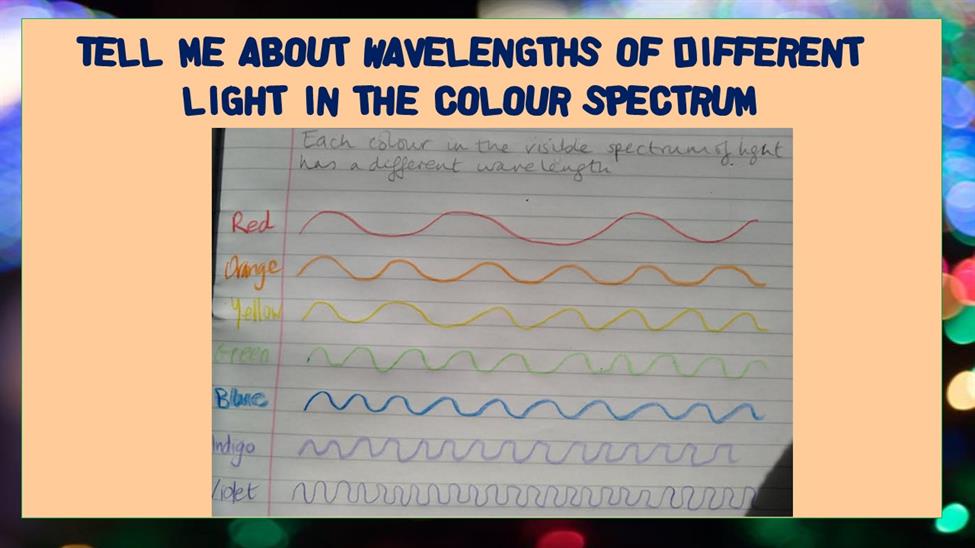 TELL ME ABOUT WAVELENGTHS OF DIFFERENT
LIGHT IN THE COLOUR SPECTRUM
Each colour in the visible spectrum of light
has a different wavelength
Red
Orange
Yellow
Green
Blue
Indigo
Violet